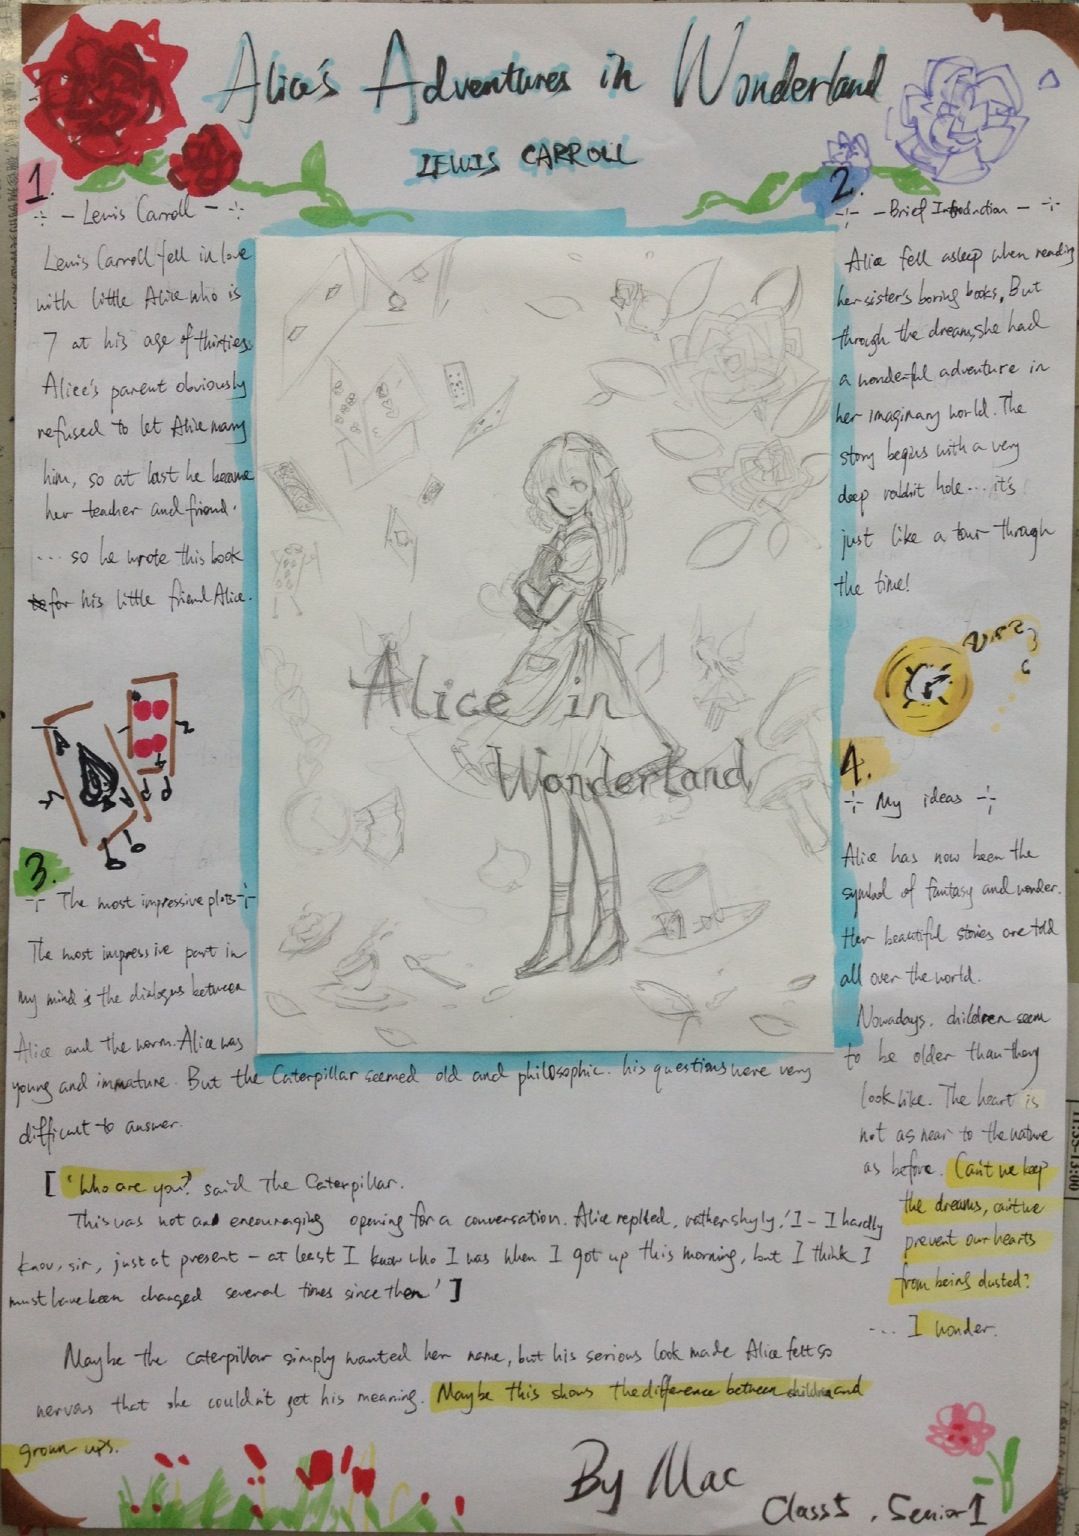 Alice's Adventures in Wonderland
LEWIS CARROLL
1.
- Lewis Carroll -
Lewis Carroll fell in love
with little Alice who is
7 at his age of thirties
Alice's parent obviously
refused to let Alice marry
him, so at last he became
her teacher and friend.
... so he wrote this book
for his little friend Alice.
2.
- Brief Introduction -
Alice fell asleep when reading
her sister's boring books. But
through the dream, she had
a wonderful adventure in
her imaginary world. The
story begins with a very
deep rabbit hole... it's
just like a tour through
the time!
Alice in
Wonderland
3.
The most impressive plots
The most impressive part in
my mind is the dialogus between
Alice and the worm. Alice was
young and immature. But the Caterpillar seemed old and philosophic. his questions were very
difficult to answer.
['Who are you?' said The Caterpillar.
This was not and encouraging opening for a conversation. Alice replied, rather shyly, 'I - I hardly
know, sir, just at present - at least I know who I was when I got up this morning, but I think I
must have been changed several times since then']
Maybe the caterpillar simply wanted her name, but his serious look made Alice felt so
nervous that she couldn't get his meaning. Maybe this shows the difference between children and
grown ups.
4.
My ideas
Alice has now been the
symbol of fantasy and wonder.
Her beautiful stories are told
all over the world.
Nowadays, children seem
to be older than they
look like. The heart is
not as near to the nature
as before. Can't we keep
the dreams, can't we
prevent our hearts
from being dusted?
... I wonder.
By Mac
Class 5, Senior 1
11:55-13:00